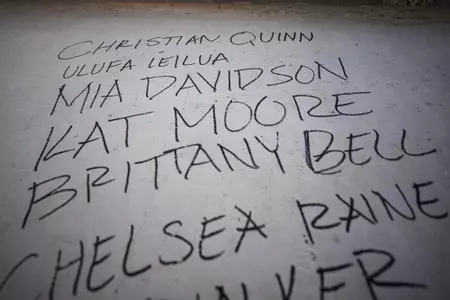 CHRISTIAN QUINN
ULUFA LEILUA
MIA DAVIDSON
KAT MOORE
BRITTANY BELL
CHELSEA RAINE